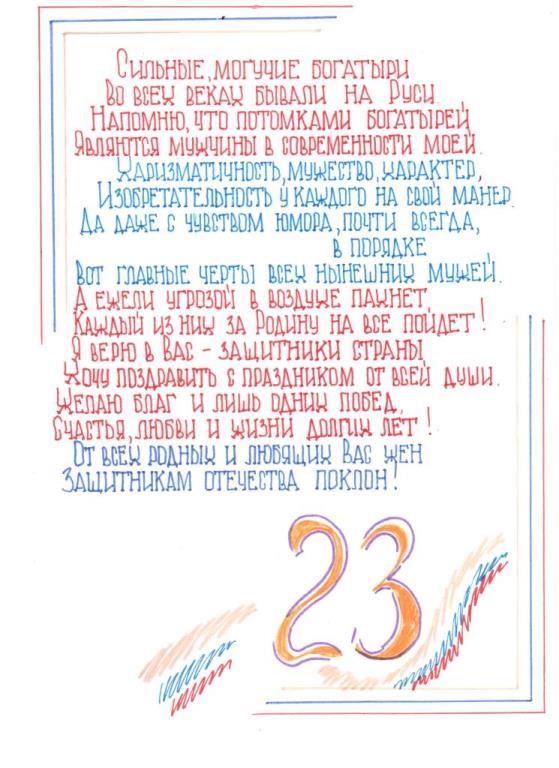 Сильные, могучие богатыри
Во всех веках бывали на Руси.
Напомню, что потомками богатырей
Являются мужчины в современности моей.
Харизматичность, мужество, характер,
Изобретательность у каждого на свой манер.
Да даже с чувством юмора, почти всегда,
в порядке
Вот главные черты всех нынешних мужей.
А ежели угрозой в воздухе пахнет
Каждый из них за Родину на все пойдет!
Я верю в Вас – защитники страны
Хочу поздравить с праздником от всей души.
Желаю благ и лишь одних побед,
Счастья, любви и жизни долгих лет!
От всех родных и любящих Вас жен
Защитникам отечества поклон!
23